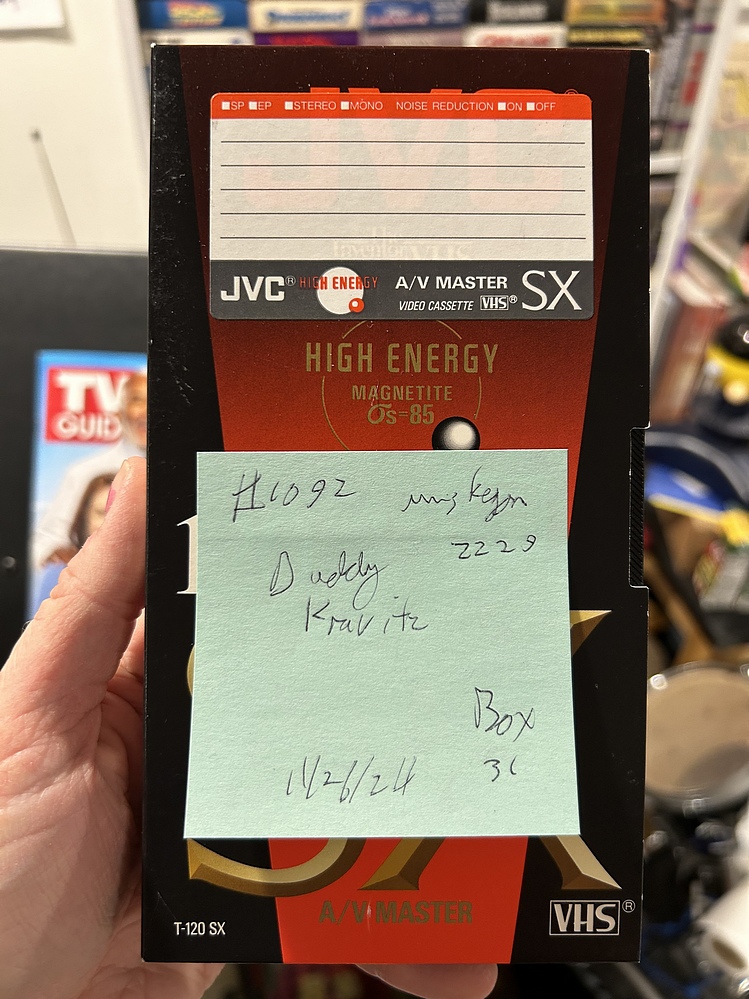 ■SP ■EP ■STEREO ■MONO NOISE REDUCTION ■ON ■OFF
JVC® HIGH ENERGY A/V MASTER SX
VIDEO CASSETTE VHS®
HIGH ENERGY
MAGNETITE
σs=85
TV
GUID
#1092
2229
Duddy
Kravitz
Box
31
11/26/24
SX
A/V MASTER
T-120 SX
VHS®